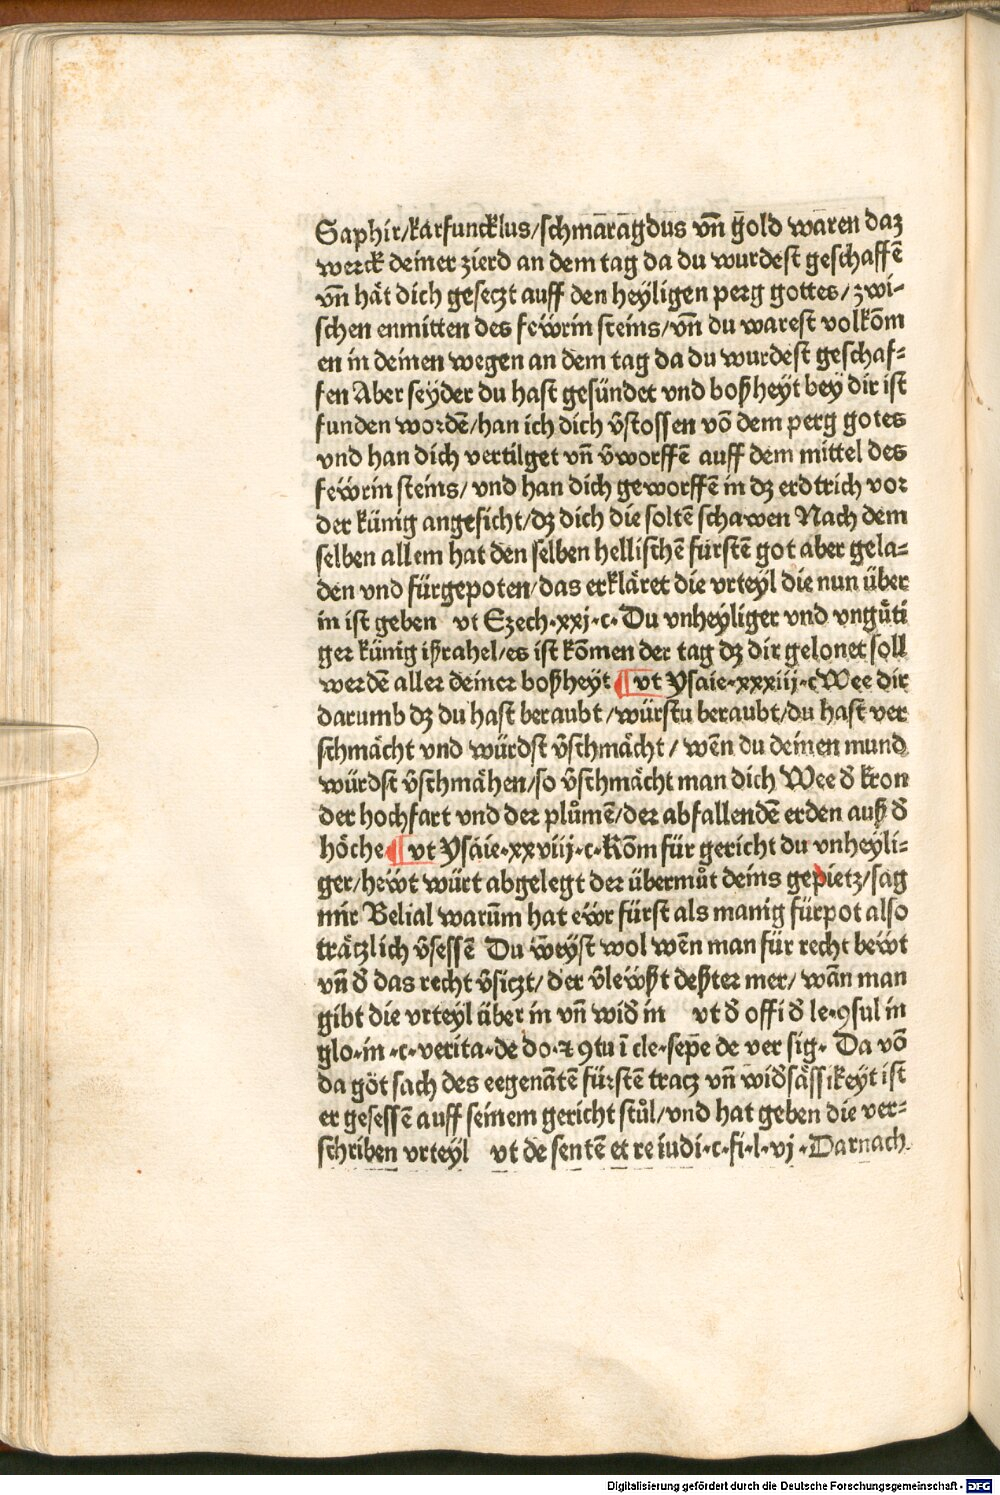 Saphir/karfuncklus/schmaragdus vn̄ gold waren daz
werck deiner zierd an dem tag da du wurdest geschaffē
vn̄ hāt dich geseczt auff den heyligen perg gottes/ zwi-
schen enmitten des fewrin steins/vn̄ du warest volkōm
en in deinen wegen an dem tag da du wurdest geschaf-
fen Aber seyder du hast gesündet vnd boßheyt bey dir ist
funden wordē/han ich dich v̄stossen vō dem perg gotes
vnd han dich vertilget vn̄ v̄worffē auff dem mittel des
fewrin steins/ vnd han dich geworffē in dz erdtrich vor
der künig angesicht/dz dich die soltē schawen Nach dem
selben allem hat den selben hellischē fürstē got aber gela-
den vnd fürgepoten/das erkläret die vrteyl die nun über
in ist geben vt Ezech·xxj·c· Du vnheyliger vnd vngůti
ger künig ißrahel/es ist kōmen der tag dz dir gelonet soll
werdē aller deiner boßheyt ¶ vt Ysaie·xxxiij·c Wee dir
darumb dz du hast beraubt/würstu beraubt/du hast ver
schmächt vnd würdst v̄schmächt/ wēn du deinen mund
würdst v̄schmähen/so v̄schmächt man dich Wee d̄ kron
der hochfart vnd der plůmē/der abfallendē erden auß d̄
höche ¶ vt Ysaie·xxviij·c·Kōm für gericht du vnheyli-
ger/hewt würt abgelegt der übermůt deins gepietz/sag
mir Belial warūm hat ewr fürst als manig fürpot also
träczlich v̄sessē Du weyst wol wēn man für recht bewt
vn̄ d̄ das recht v̄siczt/ der v̄lewßt deßter mer/ wān man
gibt die vrteyl über in vn̄ wid̄ in vt d̄ offi d̄ le·ꝯsul in
glo·in ·c·verita·de do·⁊ ꝯtu ī cle·sepē de ver sig· Da vō
da got sach des eegenātē fürstē tracz vn̄ wid̄sässikeyt ist
er gesessē auff seinem gericht stůl/vnd hat geben die ver-
schriben vrteyl vt de sentē et re iudi·c·fi·l·vj ·Darnach
Digitalisierung gefördert durch die Deutsche Forschungsgemeinschaft - DFG